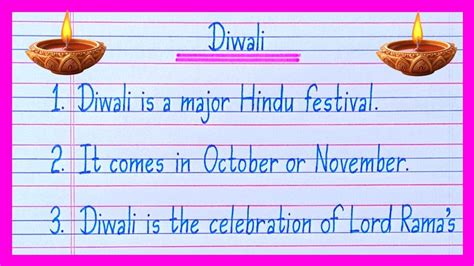 Diwali
1. Diwali is a major Hindu festival.
2. It comes in October or November.
3. Diwali is the celebration of Lord Rama's